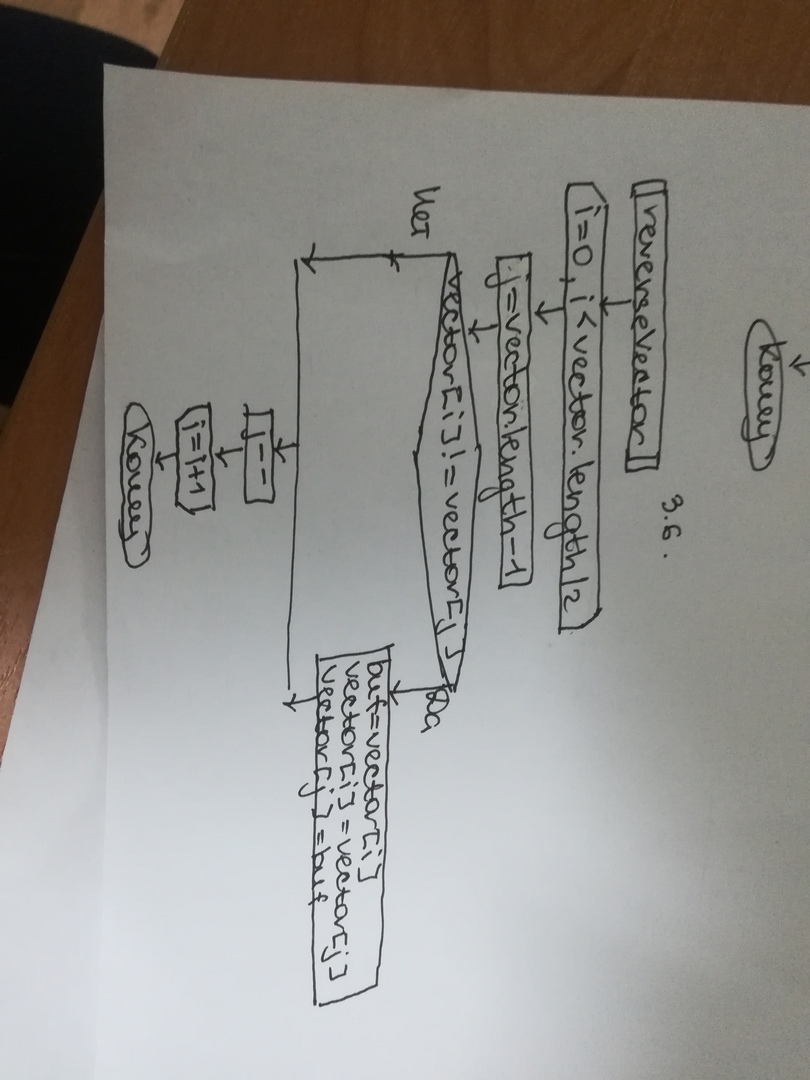 Конец
3.6.
reverseVector
i=0, i<vector.length/2
j=vector.length-1
vector[i]!=vector[j]
Нет
Да
buf=vector[i]
vector[i]=vector[j]
vector[j]=buf
j--
i=i+1
Конец